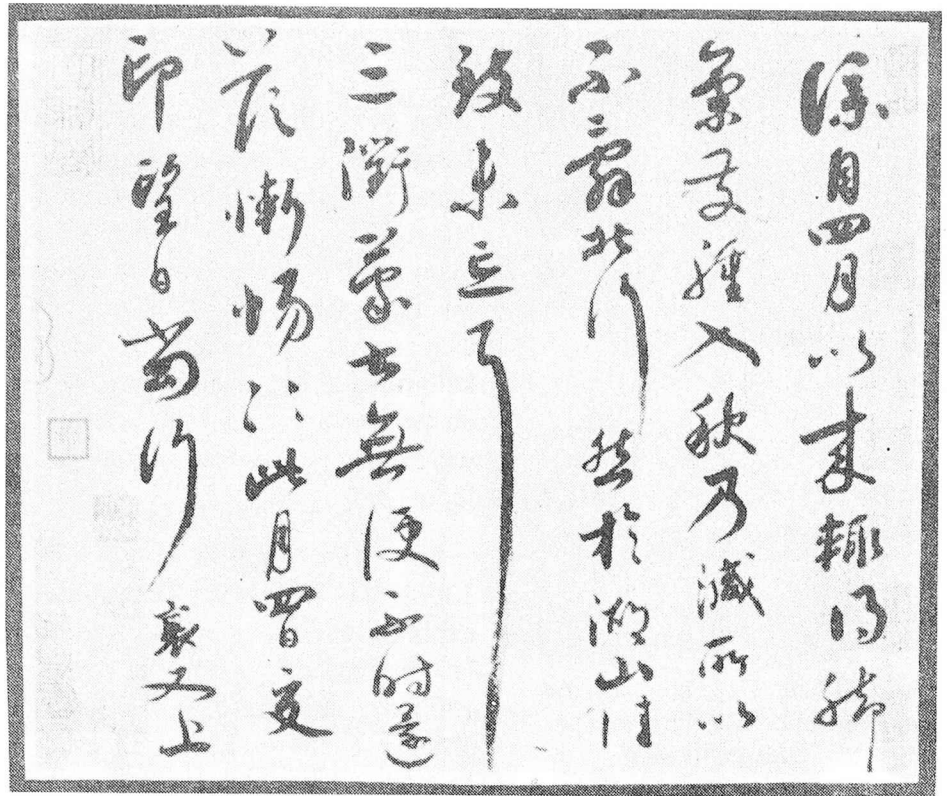 僕自四月以來輒得脚
氣發腫入秋乃減所以
不辭北行然於湖山佳
致未忘耳
三衢蒙書無便不時還
答慚惕々々此月四日交
印望日當行襄又上